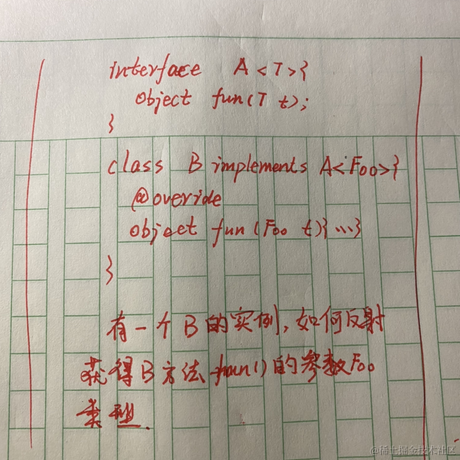 interface A<T>{
object fun(T t);
}
class B implements A<Foo>{
@override
object fun(Foo t){...}
}
有一个B的实例,如何反射
获得B方法fun()的参数Foo
类型.
@稀土掘金技术社区